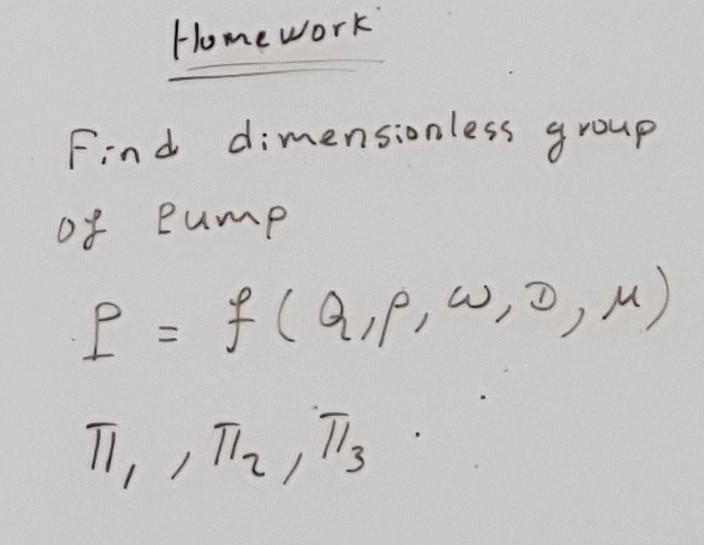 Homework
Find dimensionless group
of Pump
P = f(Q,ρ,ω,D,μ)
π₁,π₂,π₃.